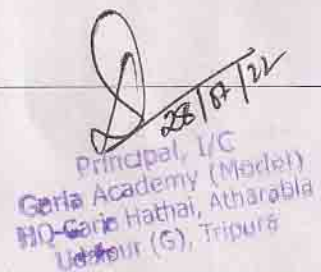 28/07/22
Principal, I/C
Garia Academy (Model)
HQ-Garia Hathai, Atharabla
Udaipur (G), Tripura